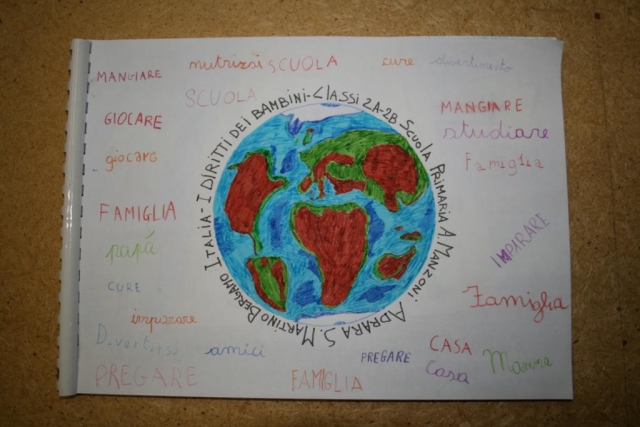 MANGIARE
nutrirsi SCUOLA
cure
divertimento
SCUOLA
MANGIARE
GIOCARE
studiare
giocare
Famiglia
I DIRITTI DEI BAMBINI-CLASSI 2A-2B SCUOLA PRIMARIA A. MANZONI ADRARA S. MARTINO BERGAMO ITALIA-
FAMIGLIA
papà
IMPARARE
CURE
Famiglia
imparare
Divertirsi
amici
PREGARE
CASA
Casa
Mamma
PREGARE
FAMIGLIA